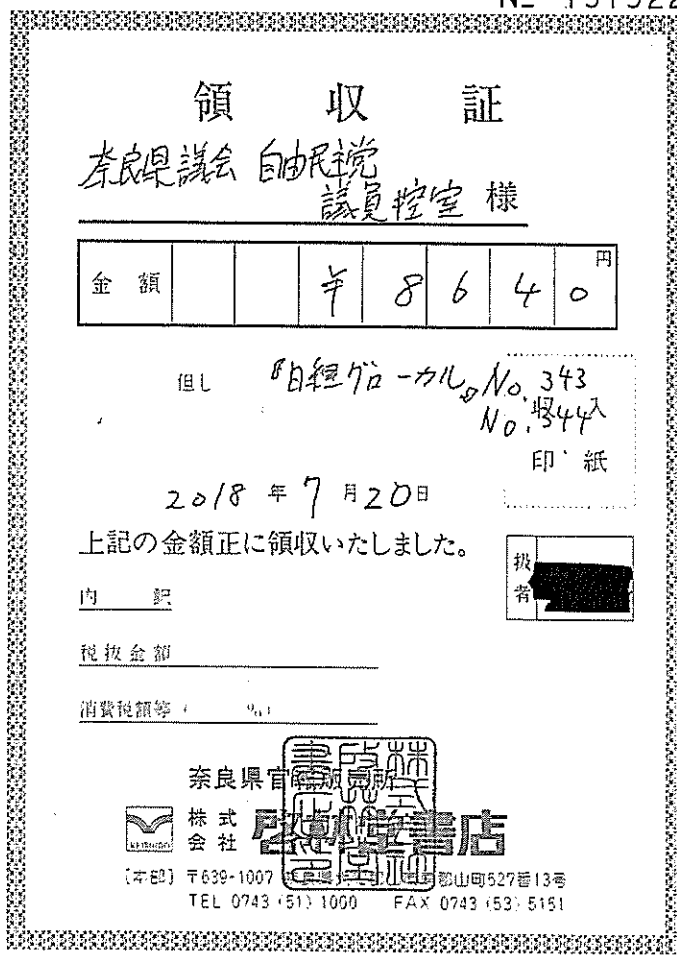 領収証
奈良県議会 自由民主党
議員控室 様
金額 ¥8640 円
但し 『日経グローカル』No.343
No.344
収入
印紙
2018年7月20日
上記の金額正に領収いたしました。
扱者
内訳
税抜金額
消費税額等( %)
奈良県官報販売所
株式会社 啓林堂書店
〔本部〕 〒639-1007 郡山町527番13号
TEL 0743(51)1000 FAX 0743(53)5151